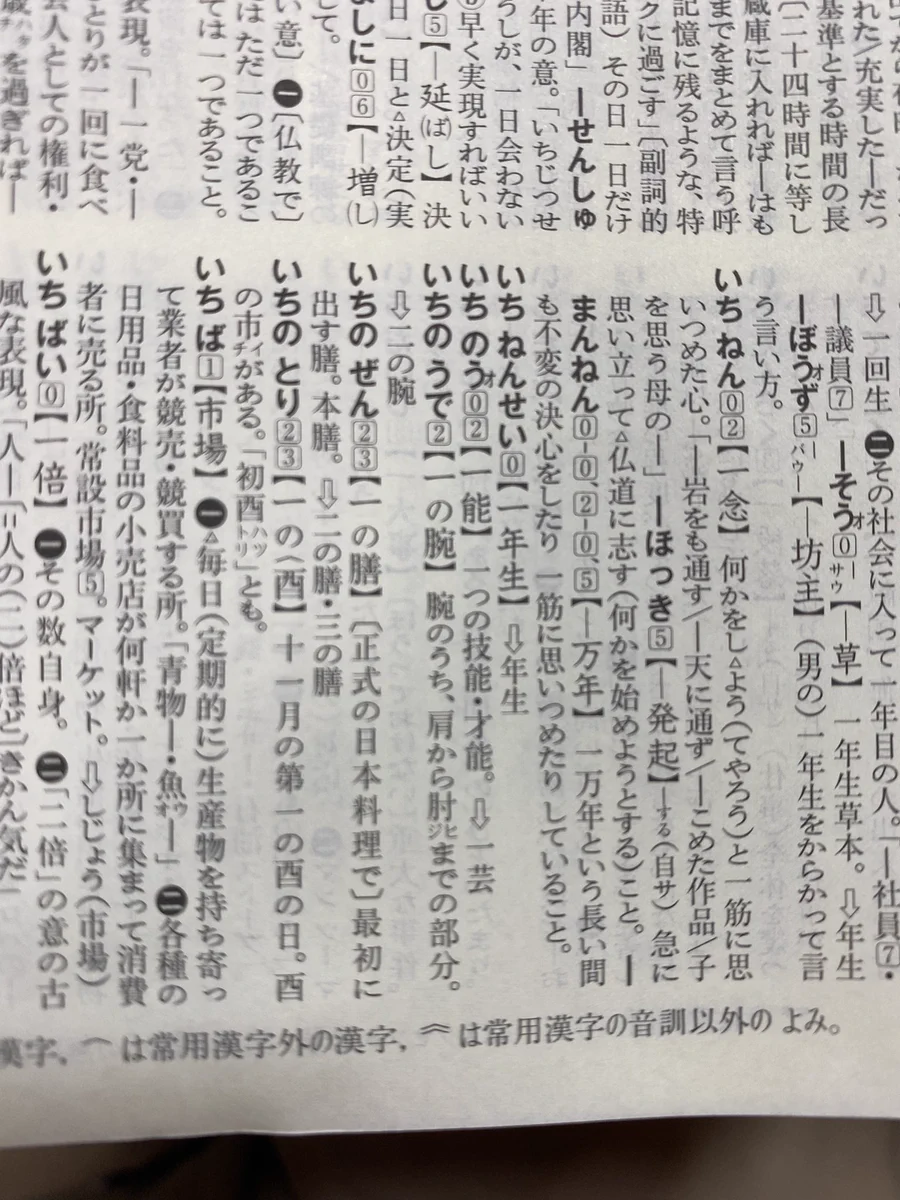 た/充実した―だっ
基準とする時間の長
〔二十四時間に等し
蔵庫に入れれば―はも
までをまとめて言う呼
記憶に残るような、特
クに過ごす」〔副詞的
語)その日一日だけ
内閣」 ―せんしゅ
年の意。「いちじつせ
うしが、一日会わない
早く実現すればいい
し⑤【―延(ば)し】 決
日一日と△決定(実
よしに⓪⑥【―増(し)
して。
い意〕 ㊀〔仏教で〕
はただ一つであるこ
ては一つであること。
表現。「―一党・―
とりが一回に食べ
会人としての権利・
を過ぎれば―
⇩一回生 ㊁その社会に入って一年目の人。「―社員⑦・
―議員⑦」 ―そう⓪【―草】 一年生草本。⇩年生
―ぼうず⑤【―坊主】(男の)一年生をからかって言
う言い方。
いちねん⓪②【一念】 何かをし△よう(てやろう)と一筋に思
いつめた心。「―岩をも通す/―天に通ず/―こめた作品/子
を思う母の―」 ―ほっき⑤【―発起】―する(自サ) 急に
思い立って△仏道に志す(何かを始めようとする)こと。 ―
まんねん⓪-⓪、②-⓪、⑤【―万年】 一万年という長い間
も不変の決心をしたり 一筋に思いつめたりしていること。
いちねんせい⓪【一年生】 ⇩年生
いちのう⓪②【一能】 一つの技能・才能。⇩一芸
いちのうで②【一の腕】 腕のうち、肩から肘ヒジまでの部分。
⇩二の腕
いちのぜん②③【一の膳】〔正式の日本料理で〕最初に
出す膳。本膳。 ⇩二の膳・三の膳
いちのとり②③【一の(酉】 十一月の第一の酉の日。酉
の市イチがある。「初酉ハツトリ」とも。
いちば①【市場】 ㊀△毎日(定期的に)生産物を持ち寄っ
て業者が競売・競買する所。「青物―・魚ウオ―」 ㊁各種の
日用品・食料品の小売店が何軒か一か所に集まって消費
者に売る所。常設市場⑤。マーケット。⇩しじょう(市場)
いちばい⓪【一倍】 ㊀その数自身。 ㊁「二倍」の意の古
風な表現。「人―〔=人の(二)倍ほど〕きかん気だ」
漢字, ︵は常用漢字外の漢字, ︽は常用漢字の音訓以外のよみ。